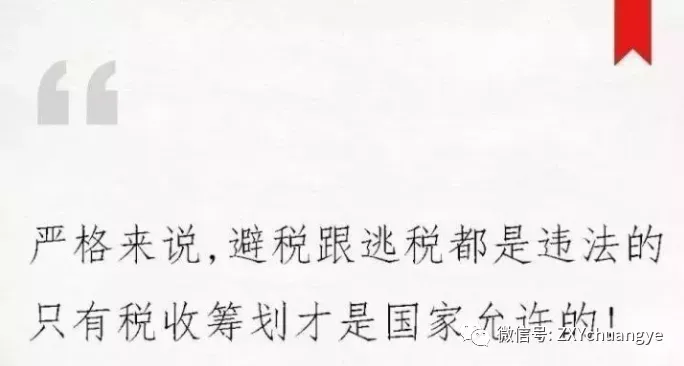 严格来说,避税跟逃税都是违法的
只有税收筹划才是国家允许的!
微信号: ZXYchuangye